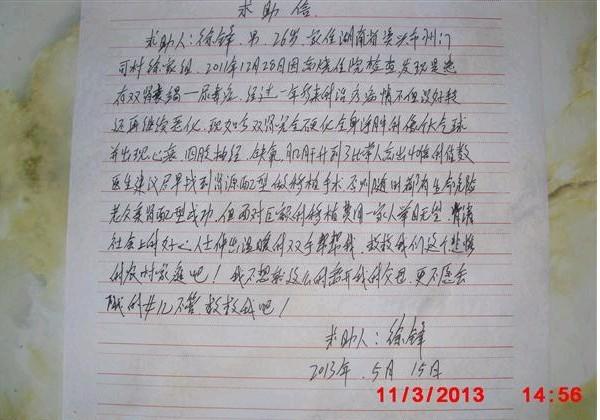 求助信.
求助人:徐锋 男 26岁 家住湖南省 市
可村徐家组. 2011年12月28日因高烧住院检查发现是患
有双肾衰竭—尿毒症. 经过一年多来的治疗病情不但没好转
还再继续恶化. 现如今双肾完全硬化全身浮肿的像个气球
并出现心衰 四肢抽经. 缺氧. 肌肝升到了比常人高出 倍的指数
医生建议尽早找到肾源配型做移植手术. 否则随时都有生命危险
老父亲肾配型成功. 但面对巨额的移植费用一家人举目无望. 请
社会上的好心人仕伸出温暖的双手帮帮我. 救救我们这个悲惨
的农村家庭吧! 我不想就这么的离开我的父母 更不愿丢
的女儿不管. 救救我吧!
求助人: 徐锋
2013年. 5月 15日
11/3/2013 14:56